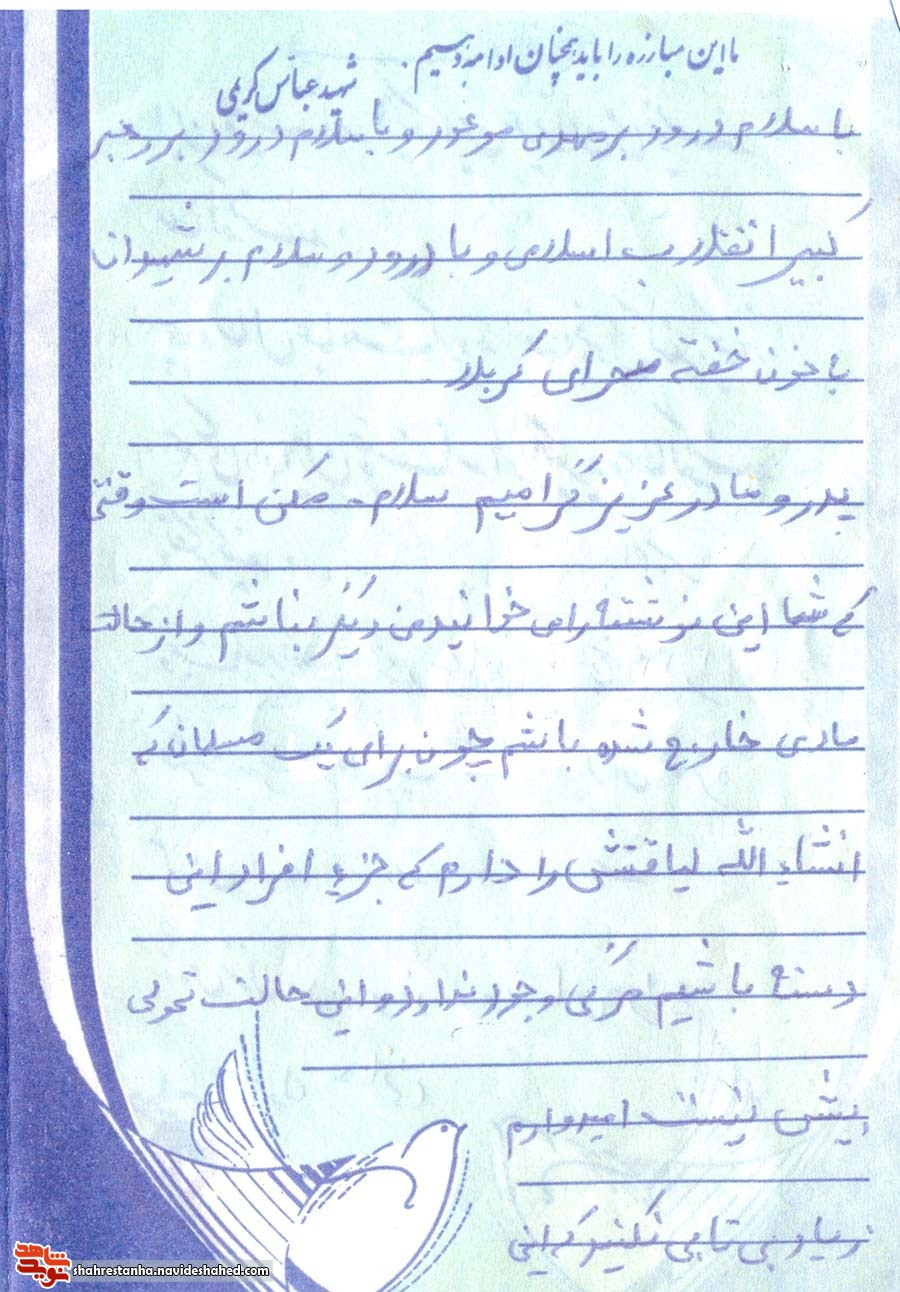 ما این مبارزه را باید همچنان ادامه دهیم.
شهید عباس کریمی
با سلام درود بر مهدی موعود و با سلام درود بر رهبر
کبیر انقلاب اسلامی و با درود و سلام بر شهیدان
با خون خفته صحرای کربلا
پدر و مادر عزیز گرامیم سلام. ممکن است وقتی
که شما این نوشته را می خوانید من دیگر نباشم و از حالت
مادی خارج شده باشم چون برای یک مسلمان که
انشاء الله لیاقتش را دارم که جزو افراد این
دسته باشیم مرگی وجود ندارد و این حالت تحولی
بیش نیست امیدوارم
زیاد بی تابی نکنید که این
شاهد
نوید
shahrestanha.navideshahed.com